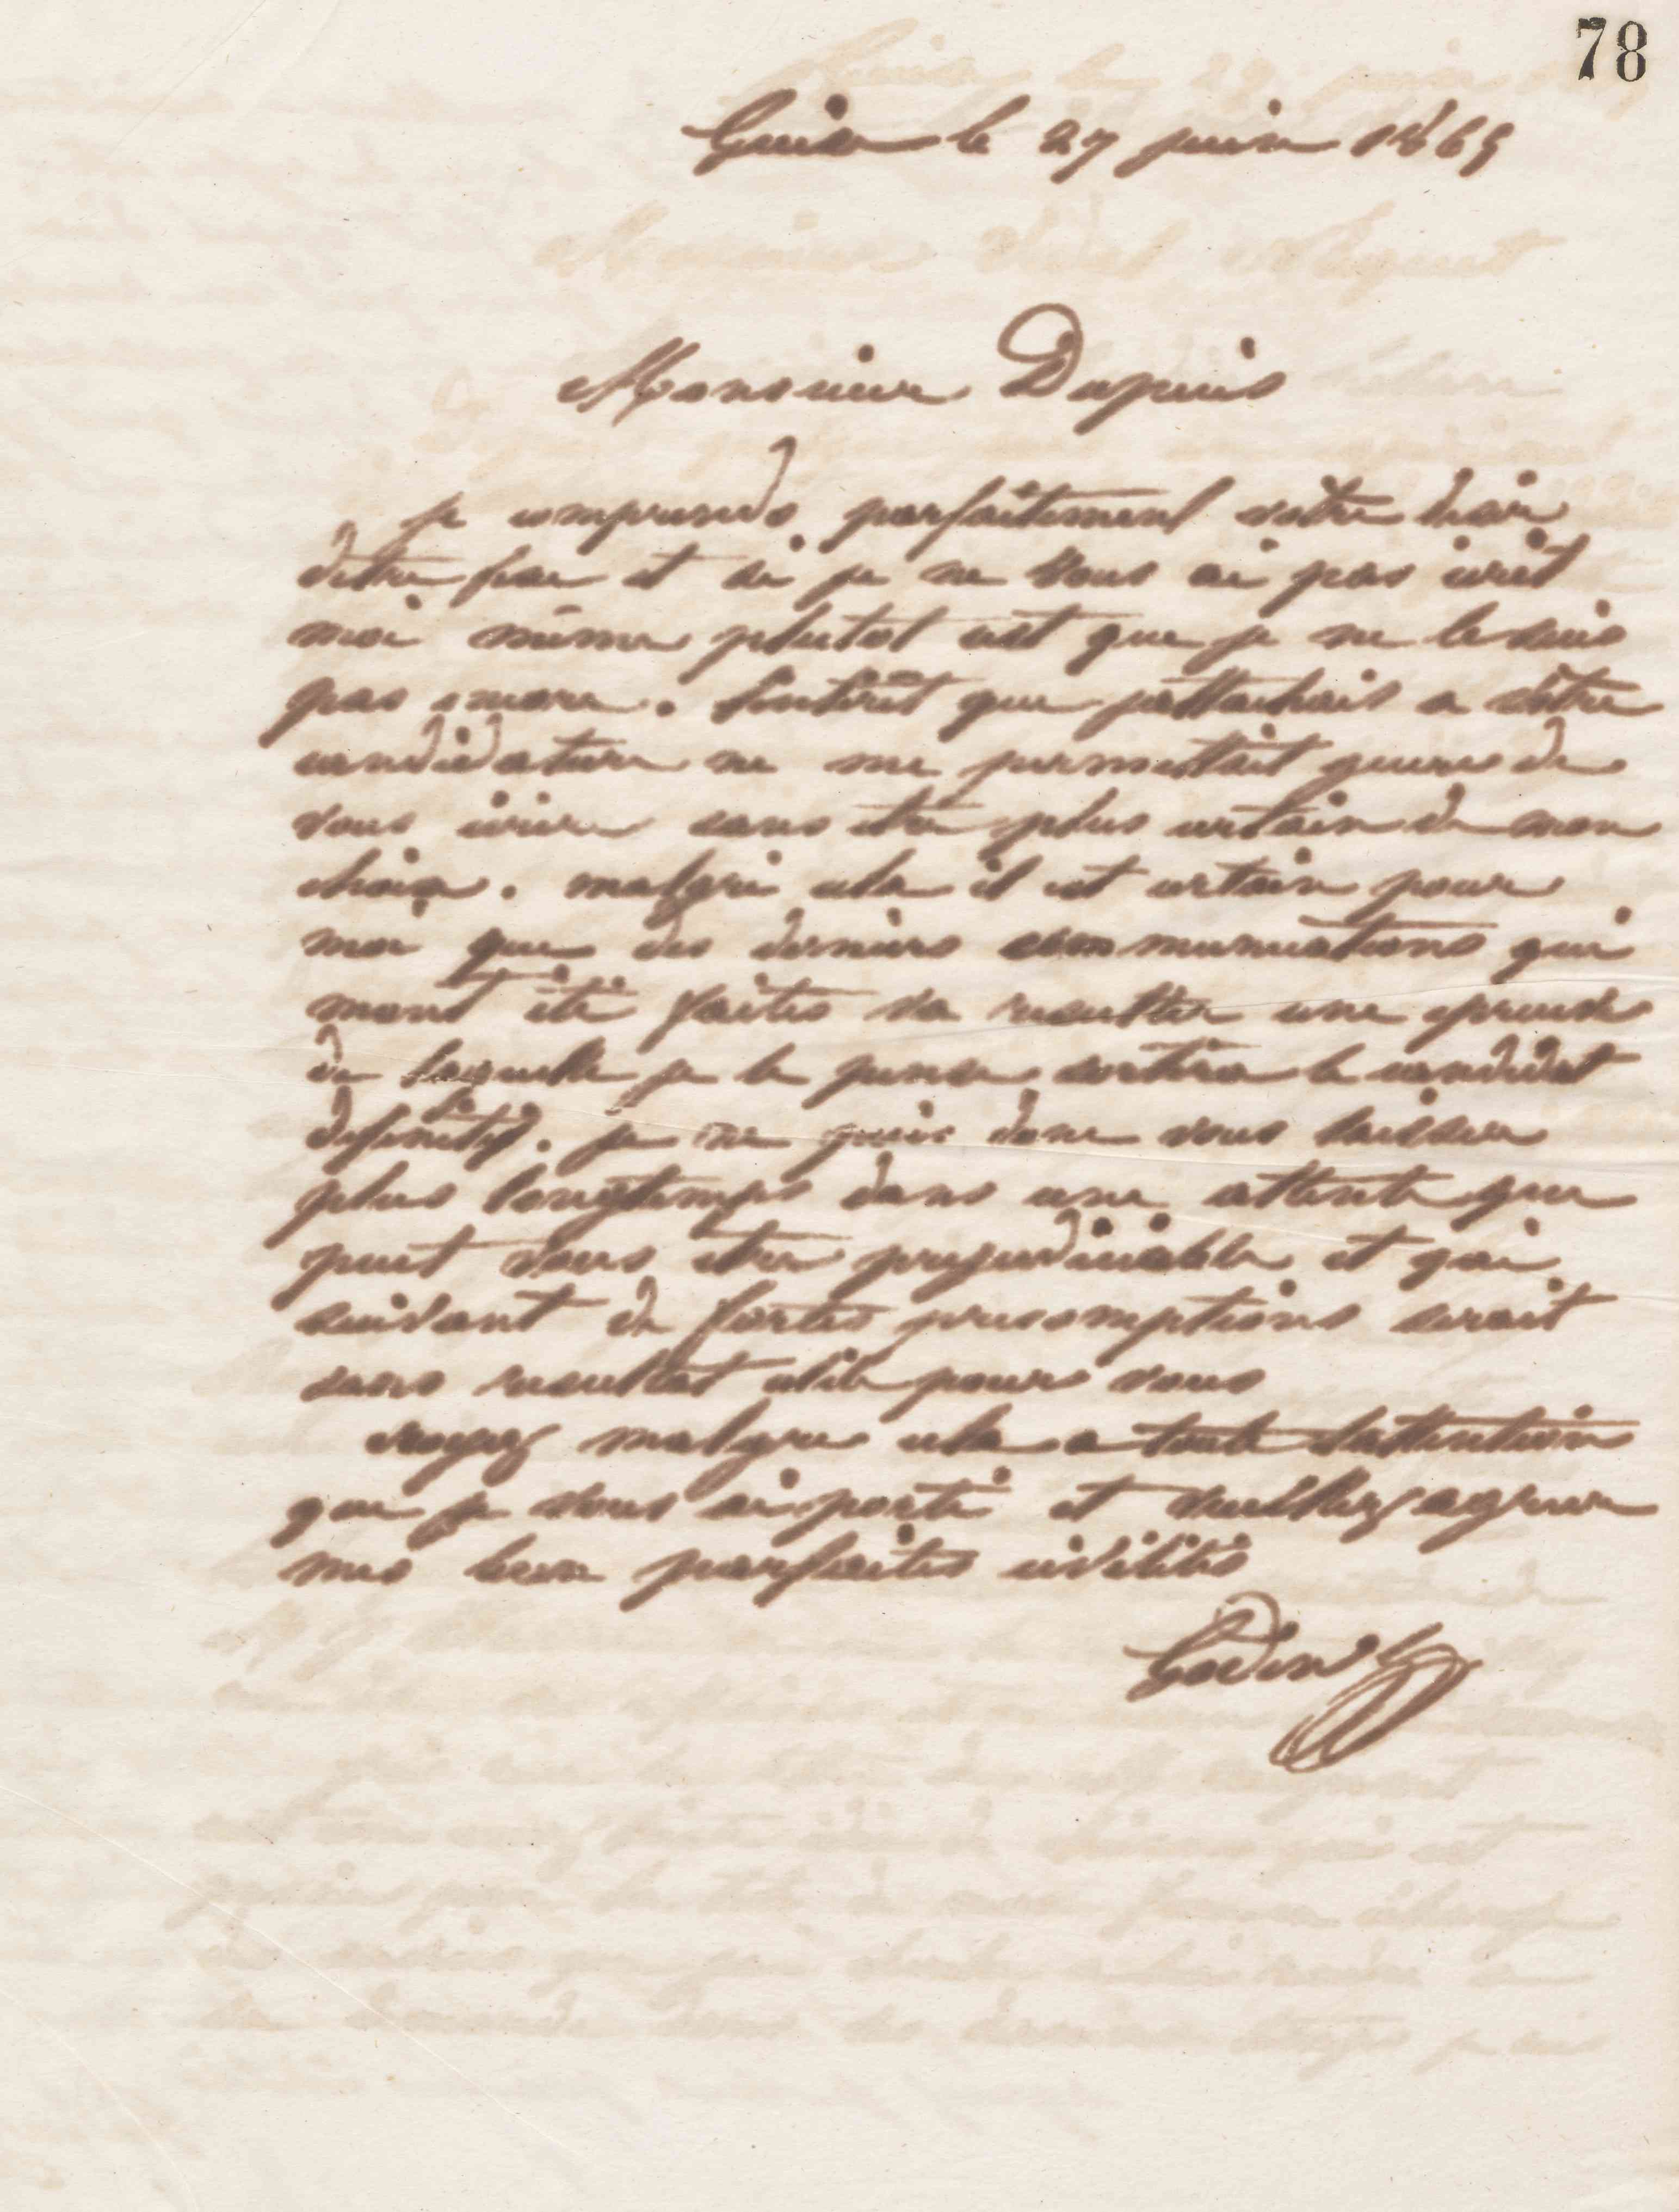 78
Guise le 27 juin 1865
Monsieur Dupuis
je comprends parfaitement votre desir
detre fixe et si je ne vous ai pas ecrit
moi même plutot cest que je ne le suis
pas encore. Lintérêt que jattachais a votre
candidature ne me permettait guere de
vous ecrire sans etre plus certain de mon
choix. malgré cela il est certain pour
moi que des dernieres communications qui
mont été faites va resulter une epreuve
de laquelle je le pense sortira le candidat
definitif. je ne puis donc vous laisser
plus longtemps dans une attente que
peut vous etre prejudiciable et qui
suivant de fortes presomptions serait
sans resultat utile pour vous
croyez malgre cela a toute lattention
que je vous ai porté et veuillez agreer
mes bien parfaites civilités
Godin